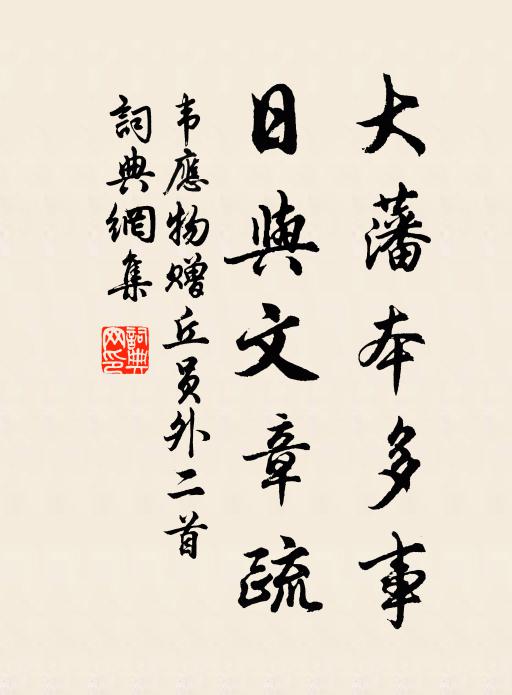 大藩本多事
日與文章疏
韦應物赠丘员外二首
詞典網集
詞典網印